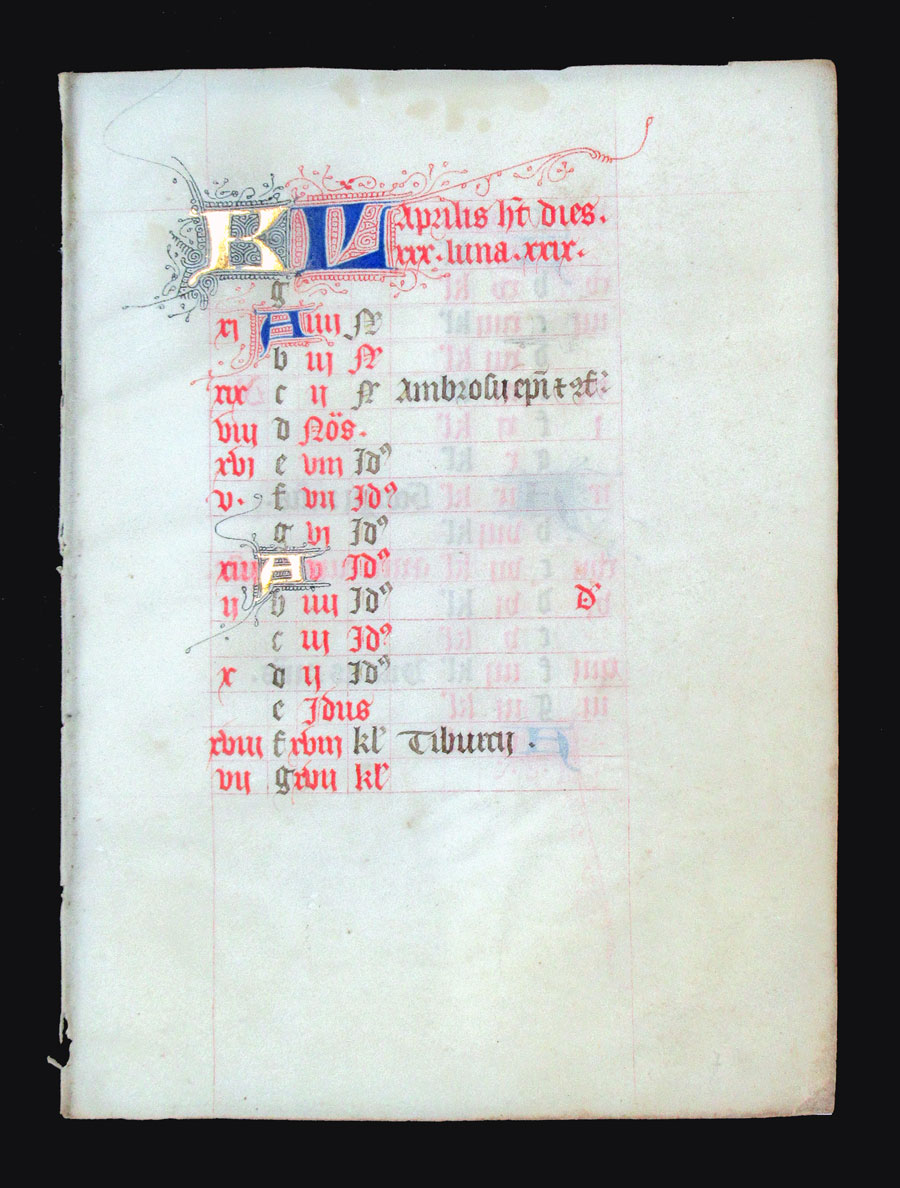 KL Aprilis ht dies.
xxx. luna. xxix.
g
xi A iiii N
b iii N
xix c ii N Ambrosij epi t
viii d Nos.
xvi e viii Id9
v. f vii Id9
g vi Id9
xiii A v Id9
ii b iiii Id9 D
c iii Id9
x d ii Id9
e Idus
xviii f xviii kl Tiburcij .
vii g xvii kl